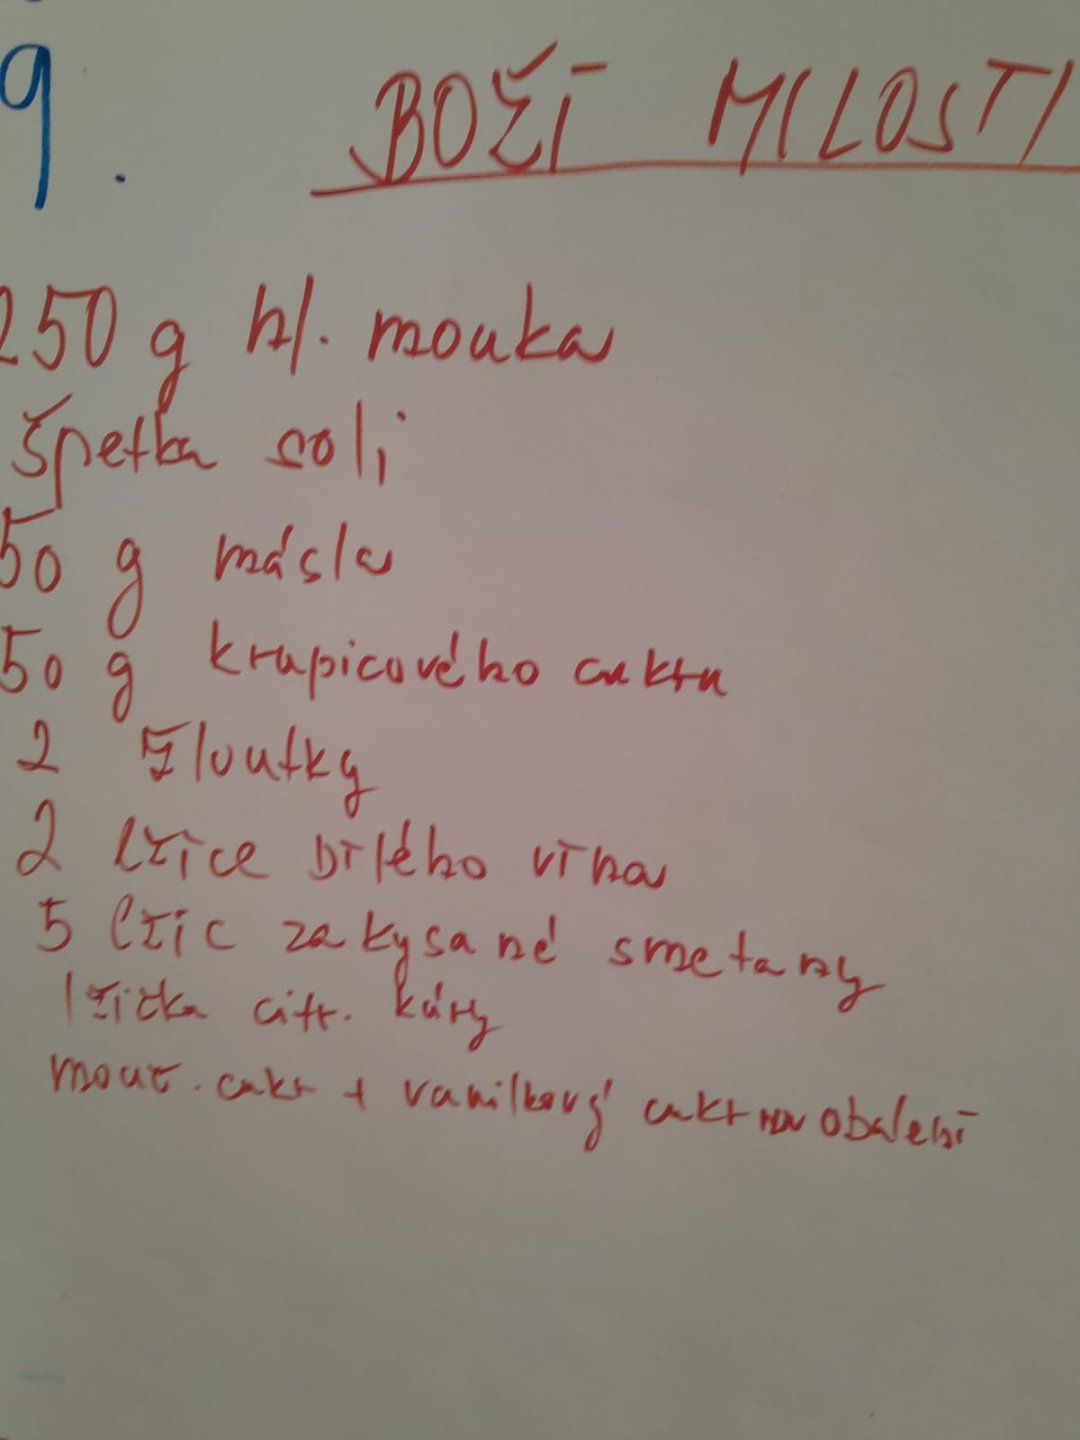 9. BOŽÍ MILOSTI
250 g hl. mouka
špetka soli
50 g másla
50 g krupicového cukru
2 žloutky
2 lžíce bílého vína
5 lžic zakysané smetany
lžička citr. kůry
mouč. cukr + vanilkový cukr na obalení